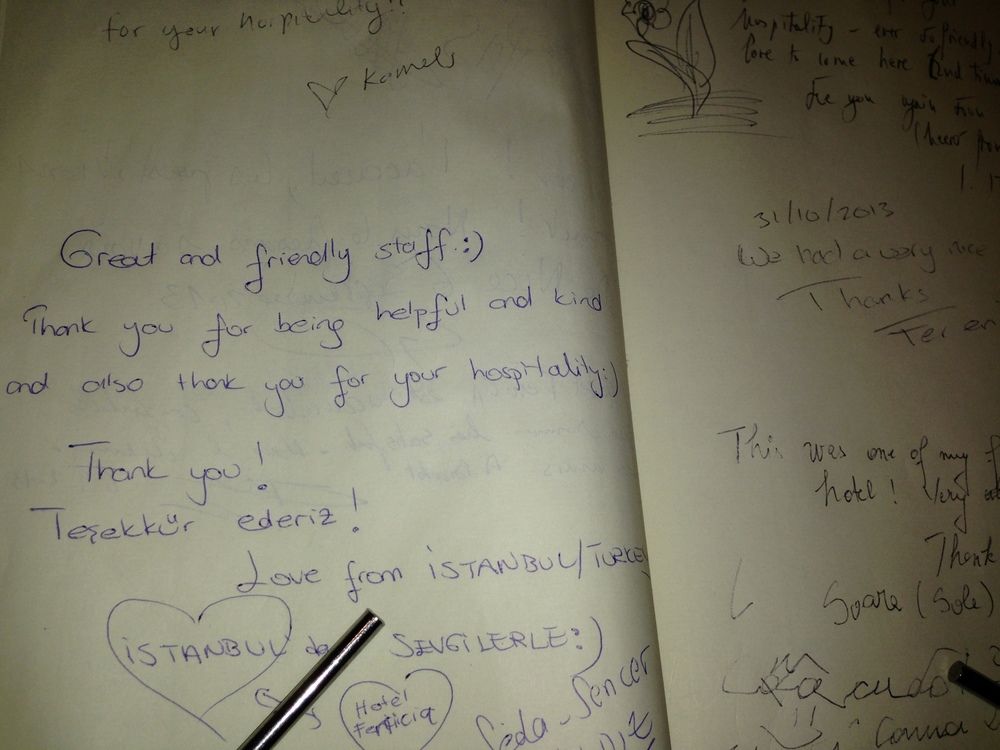 for your hospitality!!
Kamels
Great and friendly staff :)
Thank you for being helpful and kind
and also thank you for your hospitality :)
Thank you!
Teşekkür ederiz!
Love from İSTANBUL/TURKEY
İSTANBUL da SEVGİLERLE :)
Hotel
Seda - Sencer
your
hospitality - ever so friendly
love to come here
See you again
31/10/2013
We had a very nice
Thanks
This was one of my
hotel! Very
Thank
Soara (Sole)